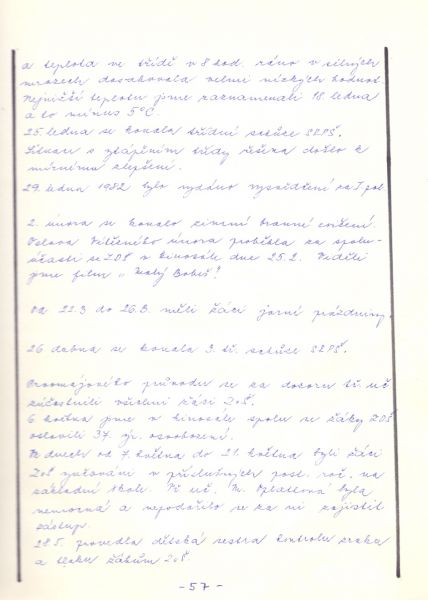 a teplota ve třídě v 8 hod. ráno v silných
mrazech dosahovala velmi nízkých hodnot.
Nejnižší teplotu jsme zaznamenali 18. ledna
a to mínus 5°C.
25. ledna se konala třídní schůze SRPŠ.
Situace s vytápěním třídy řešena došlo k
mírnému zlepšení.
29. ledna 1982 bylo vydáno vysvědčení za I. pol.
2. února se konalo zimní branné cvičení.
Oslava Vítězného února proběhla za spolu-
účasti se ZDŠ v kinosále dne 25.2. Viděli
jsme film "Malý Bobeš".
Od 22.3 do 26.3. měli žáci jarní prázdniny.
26 dubna se konala 3. tř. schůze SRPŠ.
Prvomájového průvodu se za dozoru tř. uč.
zúčastnili všichni žáci ZvŠ.
6 května jsme v kinosále spolu se žáky ZDŠ
oslavili 37. výr. osvobození.
Ve dnech od 7. května do 21. května byli žáci
ZvŠ vyučováni v příslušných post. roč. na
základní škole. Tř. uč. M. byla
nemocná a nepodařilo se za ni zajistit
zástup.
28.5. provedla dětská sestra kontrolu zraku
a tlaku žákům ZvŠ.
- 57 -